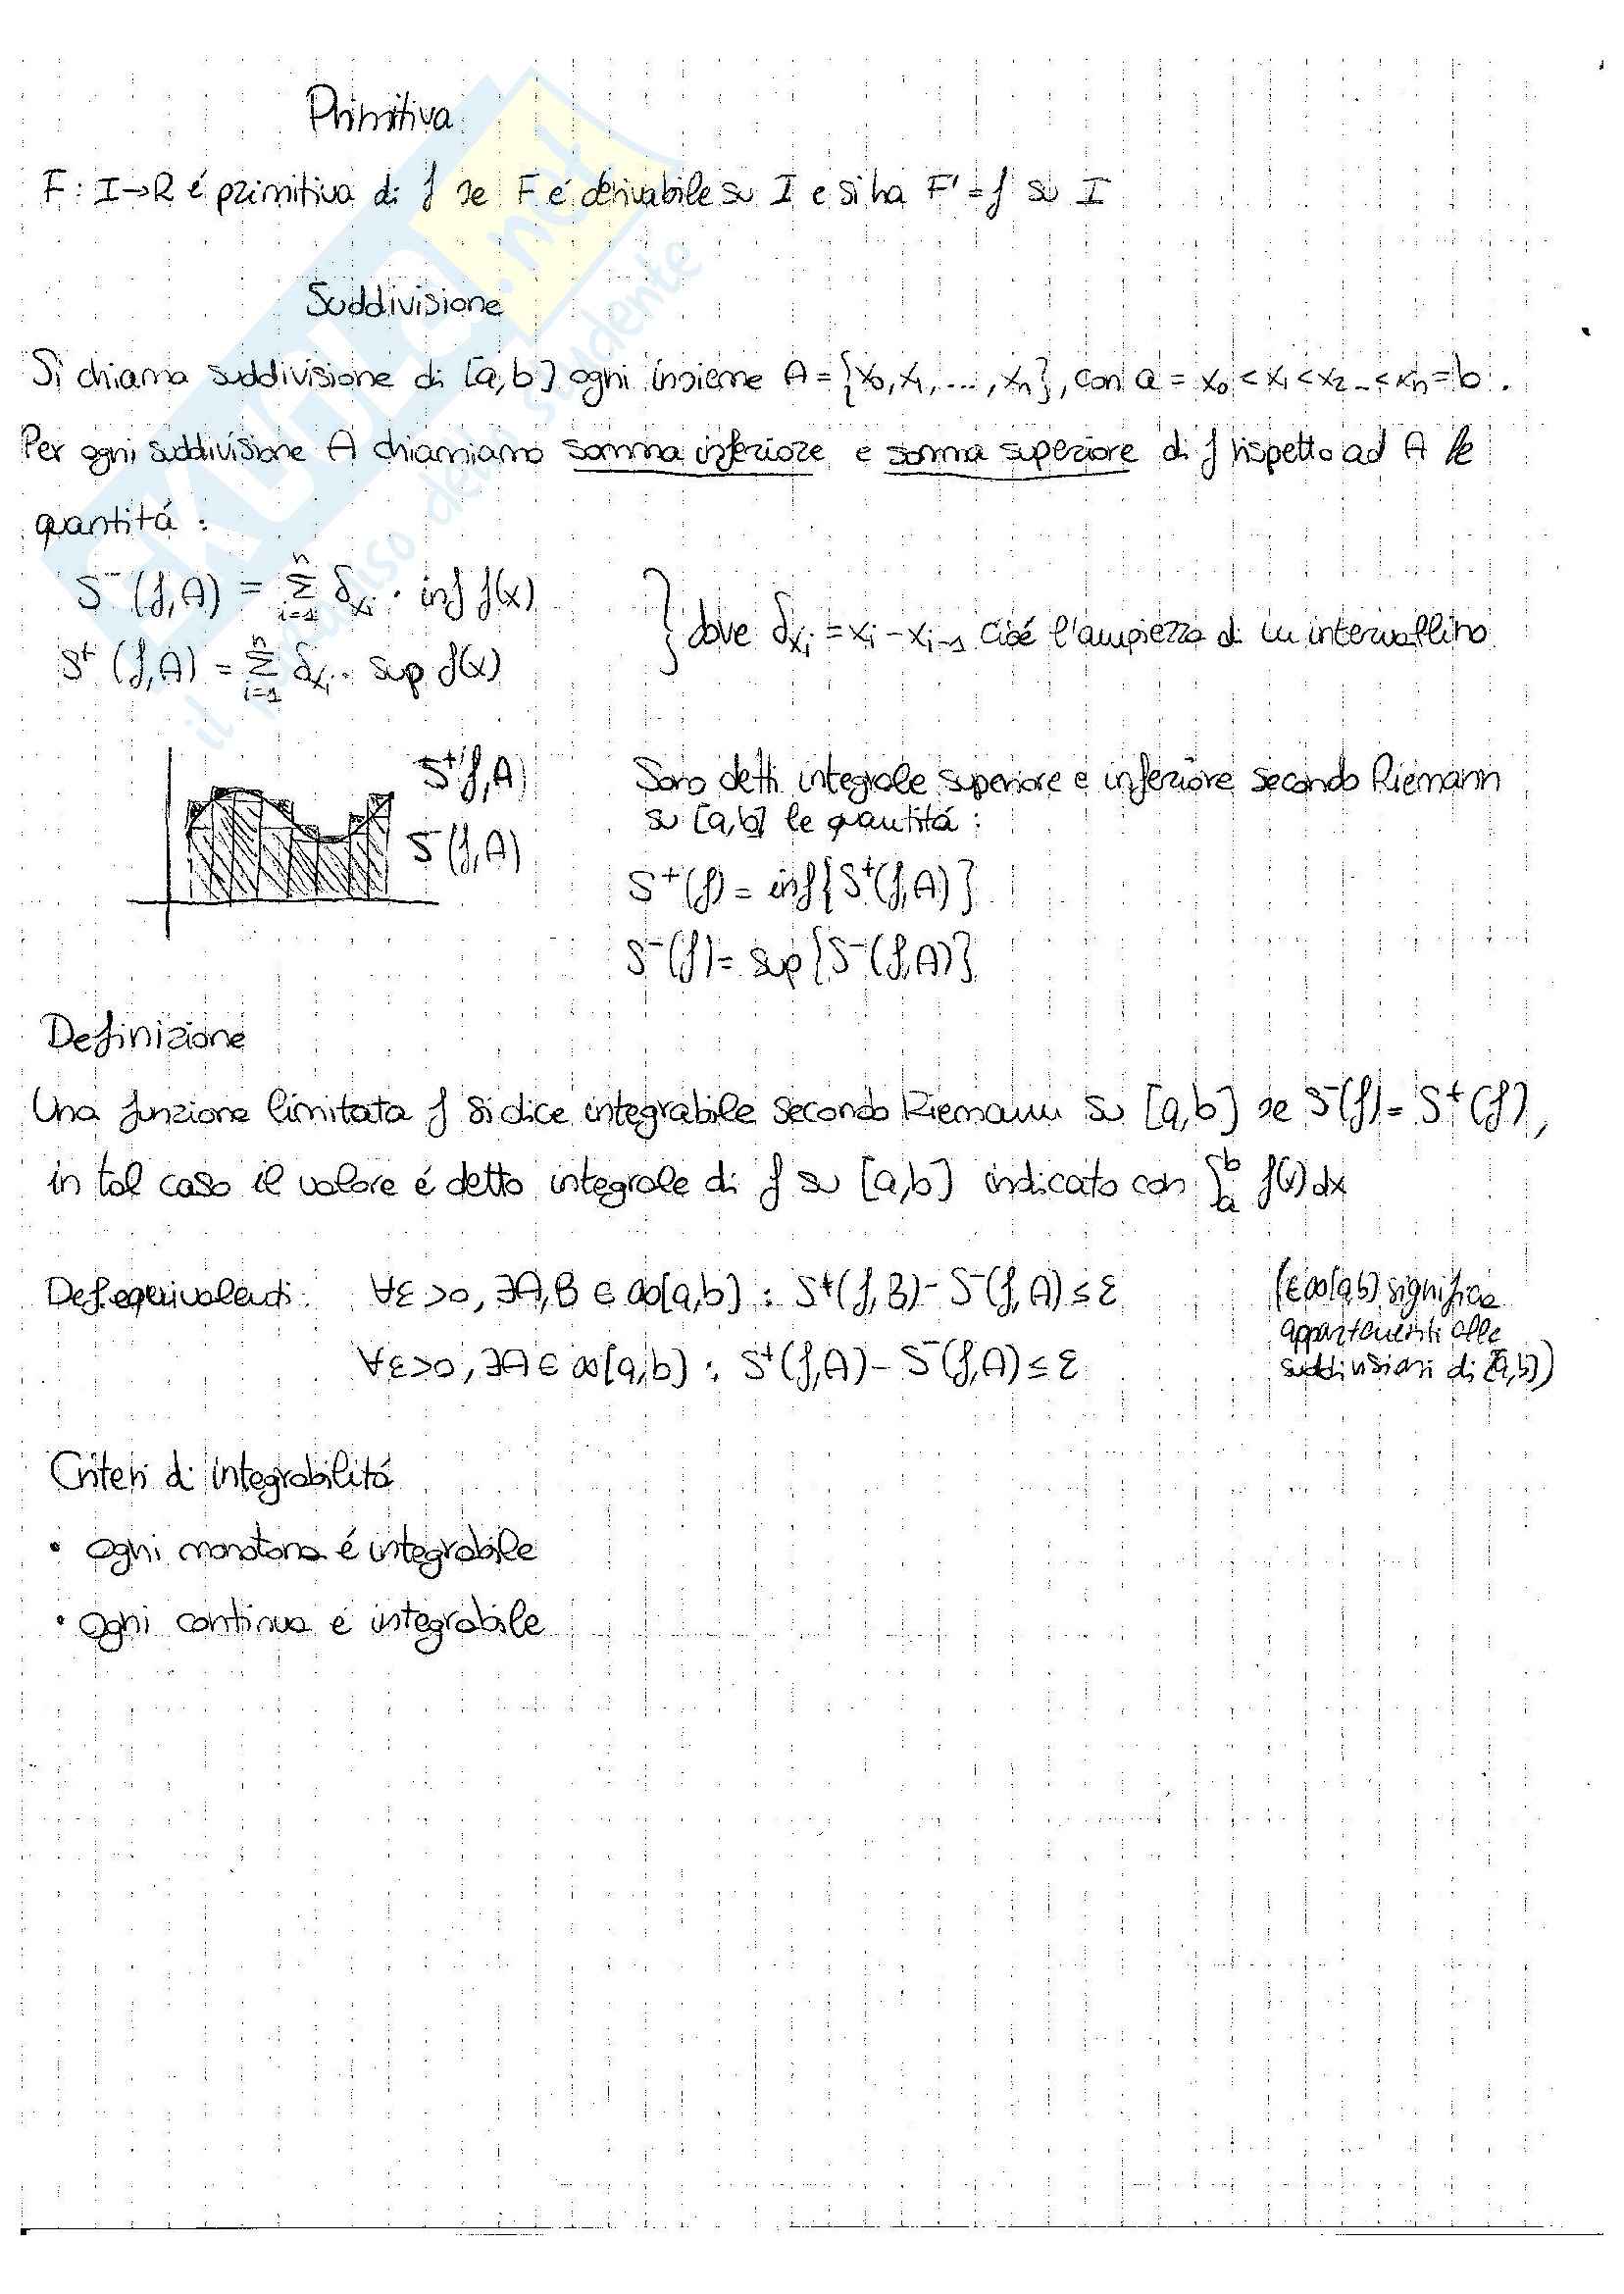 Primitiva
F : I→R é primitiva di f se F é derivabile su I e si ha F' = f su I
Suddivisione
Si chiama suddivisione di [a,b] ogni insieme A = {x₀, x₁, ..., xₙ}, con a = x₀ < x₁ < x₂ .. < xₙ = b .
Per ogni suddivisione A chiamiamo somma inferiore e somma superiore di f rispetto ad A le
quantitá :
S⁻(f,A) = Σⁿᵢ₌₁ δxᵢ · inf f(x)
S⁺(f,A) = Σⁿᵢ₌₁ δxᵢ · sup f(x)
} dove δxᵢ = xᵢ - xᵢ₋₁ cioé l'ampiezza di un intervallino
S⁺(f,A)
S⁻(f,A)
Sono detti integrale superiore e inferiore secondo Riemann
su [a,b] le quantitá :
S⁺(f) = inf{S⁺(f,A)}
S⁻(f) = sup{S⁻(f,A)}
Definizione
Una funzione limitata f si dice integrabile secondo Riemann su [a,b] se S⁻(f) = S⁺(f),
in tal caso il valore é detto integrale di f su [a,b] indicato con ∫ₐᵇ f(x)dx
Def. equivalenti: ∀ε>0, ∃A,B ∈ ∞[a,b] : S⁺(f,B) - S⁻(f,A) ≤ ε
∀ε>0, ∃A ∈ ∞[a,b] : S⁺(f,A) - S⁻(f,A) ≤ ε
(∈∞[a,b] significa
appartenenti alle
suddivisioni di [a,b])
Criteri di integrabilitá
• ogni monotona é integrabile
• ogni continua é integrabile
SKUOLA.net
il paradiso dello studente